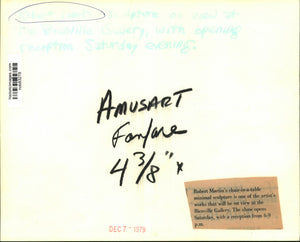 sculpture on view at
Gallery, with opening
reception Saturday evening.
AMUSART
Fanfare
4 3/8" x
DEC 7 1979
Robert Martin's chair-in-a-table
minimal sculpture is one of the artist's
works that will be on view at the
Bienville Gallery. The show opens
Saturday, with a reception from 6-9
p.m.